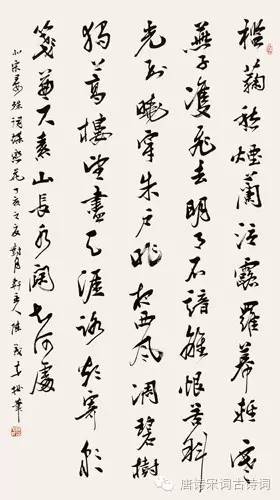 檻菊愁煙蘭泣露羅幕輕寒
燕子雙飛去明月不諳離恨苦斜
光到曉穿朱戶昨夜西風凋碧樹
獨上高樓望盡天涯路欲寄彩
箋兼尺素山長水闊知何處
北宋晏殊詞蝶戀花丁亥之夏對月軒主人陳
唐诗宋词古诗词